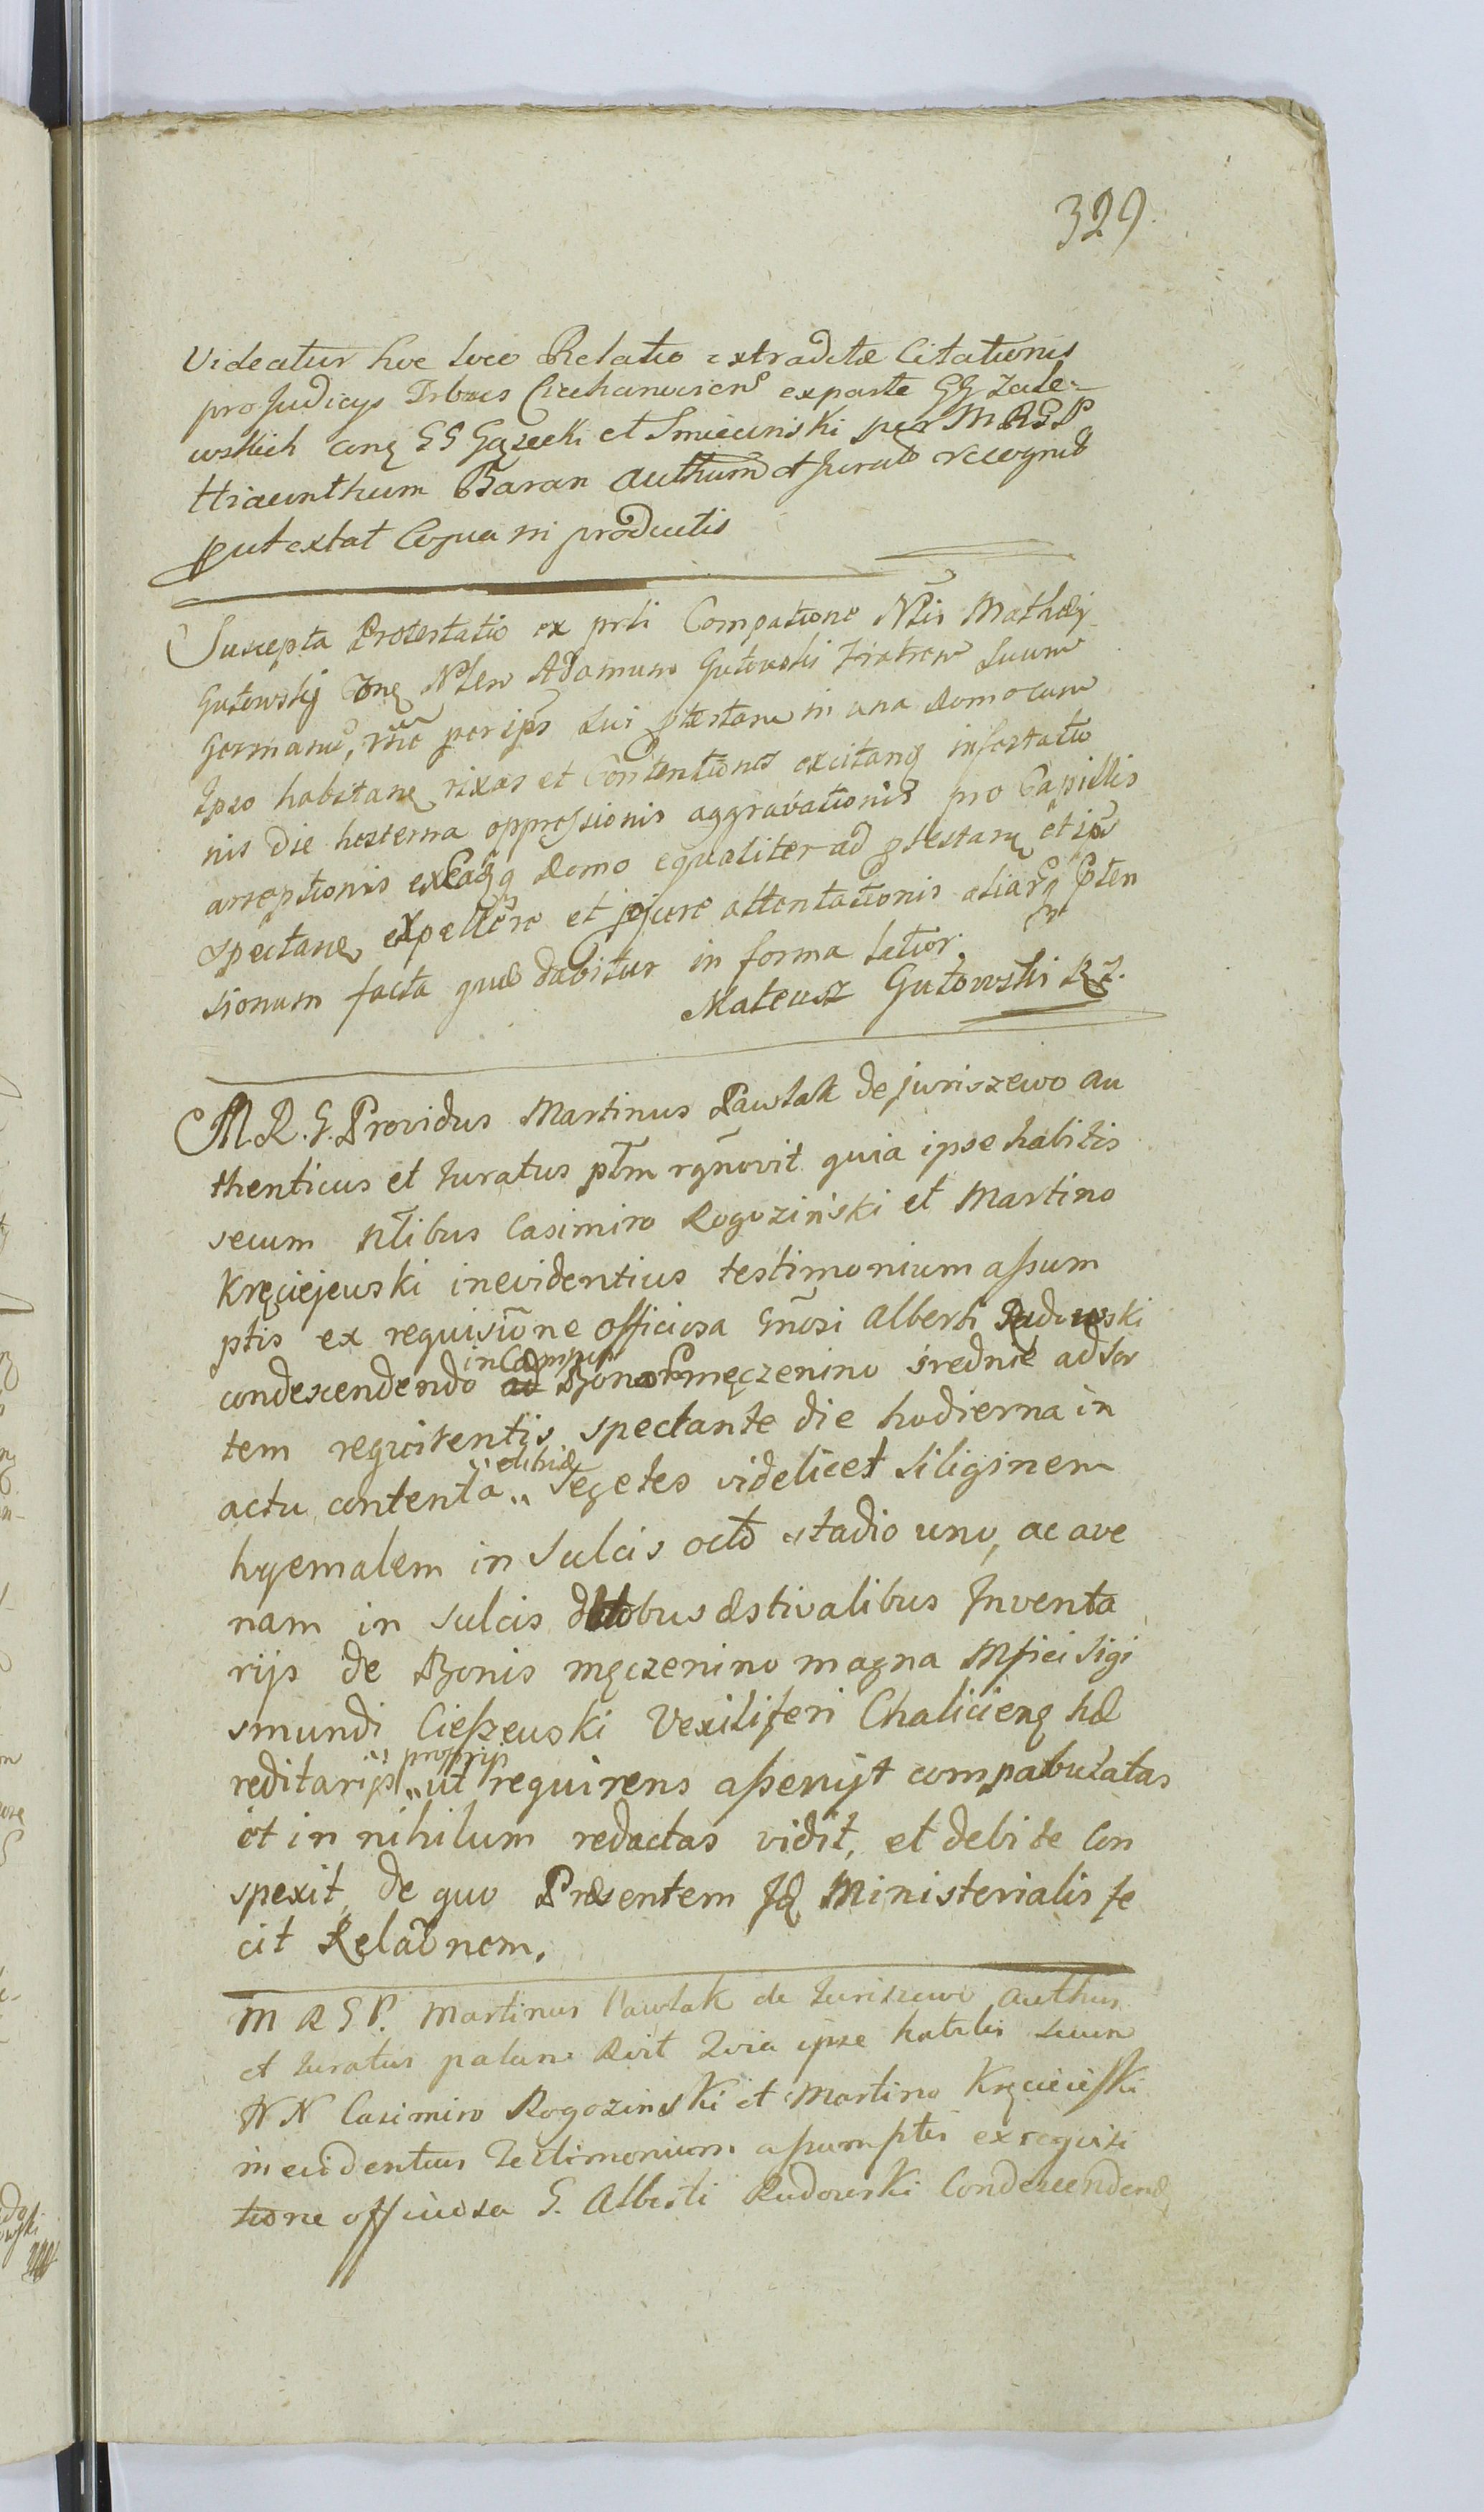 329.
Videatur hoc loco Relatio extraditæ Citationis
pro Judicys Trbus Ciechanoviens exparte GG Zale-
wskich conq GG Gąsecki et Smiecinski per MRGP
Hiacinthum Baran Authum et Jurat recognit
put extat Copia in productis
Suscepta Protestatio ex prti Compatione Nlis Mathæy
Gutowskij Conq Nlem Adamum Gutowski Fratrem Suum
Germanu, rne per ips sui ptestane in una domo cum
Ipso habitane rixas et Contentiones excitanq infestatio
nis die hesterna oppressionis aggravationis pro Capillis
arreptionis domo equaliter ad ptestane et ips
spectane expellere et jejure attentationis aliarq pten
sionum facta quæ dabitur in forma latior.
Mateusz Gutowski
M. R. G. Providus Martinus Pawlak de juriszewo au
thenticus et Juratus ptm rgnovit quia ipse habitis
secum Nlibus Casimiro Rogoziński et Martino
Kręciejewski in evidentius testimonium assum
ptis ex requisitione officiosa Gnosi Alberti Rudowski
in Campum
condescendendo ad Bona męczenino średnie ad sor
tem requirentis spectante die hodierna in
obhid
actu contenta „ Segetes videlicet siliginem
hyemalem in Sulcis octo stadio uno, ac ave
nam in sulcis duobus æstivalibus Inventa
rijs de Bonis męczenino magna Mfici Sigi
smundi Cieszewski Vexiliferi Chalicienq hæ
proprijs
reditarijs „ ut requirens asserijt compabulatas
et in nihilum redactas vidit, et debite Con
spexit, de quo Præsentem Jd Ministerialis fe
cit Relaonem.
M R G P. Martinus Pawlak de Juriszewo Authus
et Juratus palam Rvit Quia ipse habitis secum
NN Casimiro Rogozinski et Martino Kręcieieski
in euidentius Testimonium assumptis ex requisi
tione officiosa G. Alberti Rudowski Condescendend